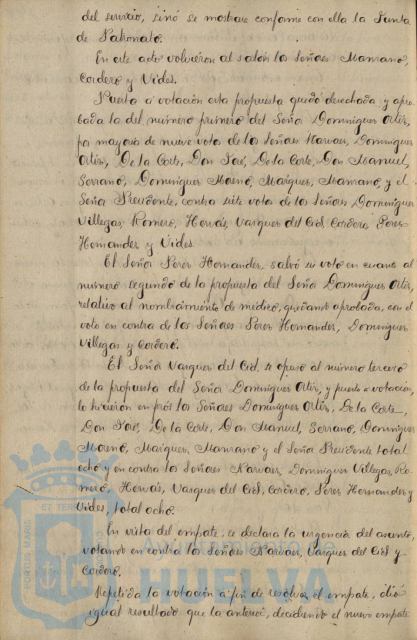 del servicio, sinó se mostrase conforme con ella la Junta
de Patronato.
En este acto volvieron al salón los Señores Manzano,
Cordero y Vides.
Puesta a votación esta propuesta quedó desechada y apro-
bada la del número primero del Señor Dominguez Ortiz,
por mayoria de nueve votos de los Señores Narvaez, Dominguez
Ortiz, De la Corte, Don José, De la Corte, Don Manuel,
Serrano, Dominguez Moreno, Marquez, Manzano y el
Señor Presidente, contra siete votos de los Señores Dominguez
Villegas, Romero, Hervás, Vazquez del Cid, Cordero, Perez
Hernandez y Vides.
El Señor Perez Hernandez, salvó su voto en cuanto al
número segundo de la propuesta del Señor Dominguez Ortiz,
relativo al nombramiento de médico, quedando aprobada, con el
voto en contra de los Señores Perez Hernandez, Dominguez
Villegas y Cordero.
El Señor Vazquez del Cid, se opuso al número tercero
de la propuesta del Señor Dominguez Ortiz, y puesta a votación,
lo hicieron en prós los Señores Dominguez Ortiz, De la Corte,
Don José, De la Corte, Don Manuel, Serrano, Dominguez
Moreno, Marquez, Manzano y el Señor Presidente total
ocho y en contra los Señores Narvaez, Dominguez Villegas, Ro-
mero, Hervás, Vazquez del Cid, Cordero, Perez Hernandez y
Vides, total ocho.
En vista del empate, se declara la urgencia del asunto,
votando en contra los Señores Narvaez, Vazquez del Cid y
Cordero.
Repetida la votación a fin de resolver el empate, dió
igual resultado que la anterior, decidiendo el nuevo empate
PORTUS MARIS ET TERRAE
Ayuntamiento de
HUELVA